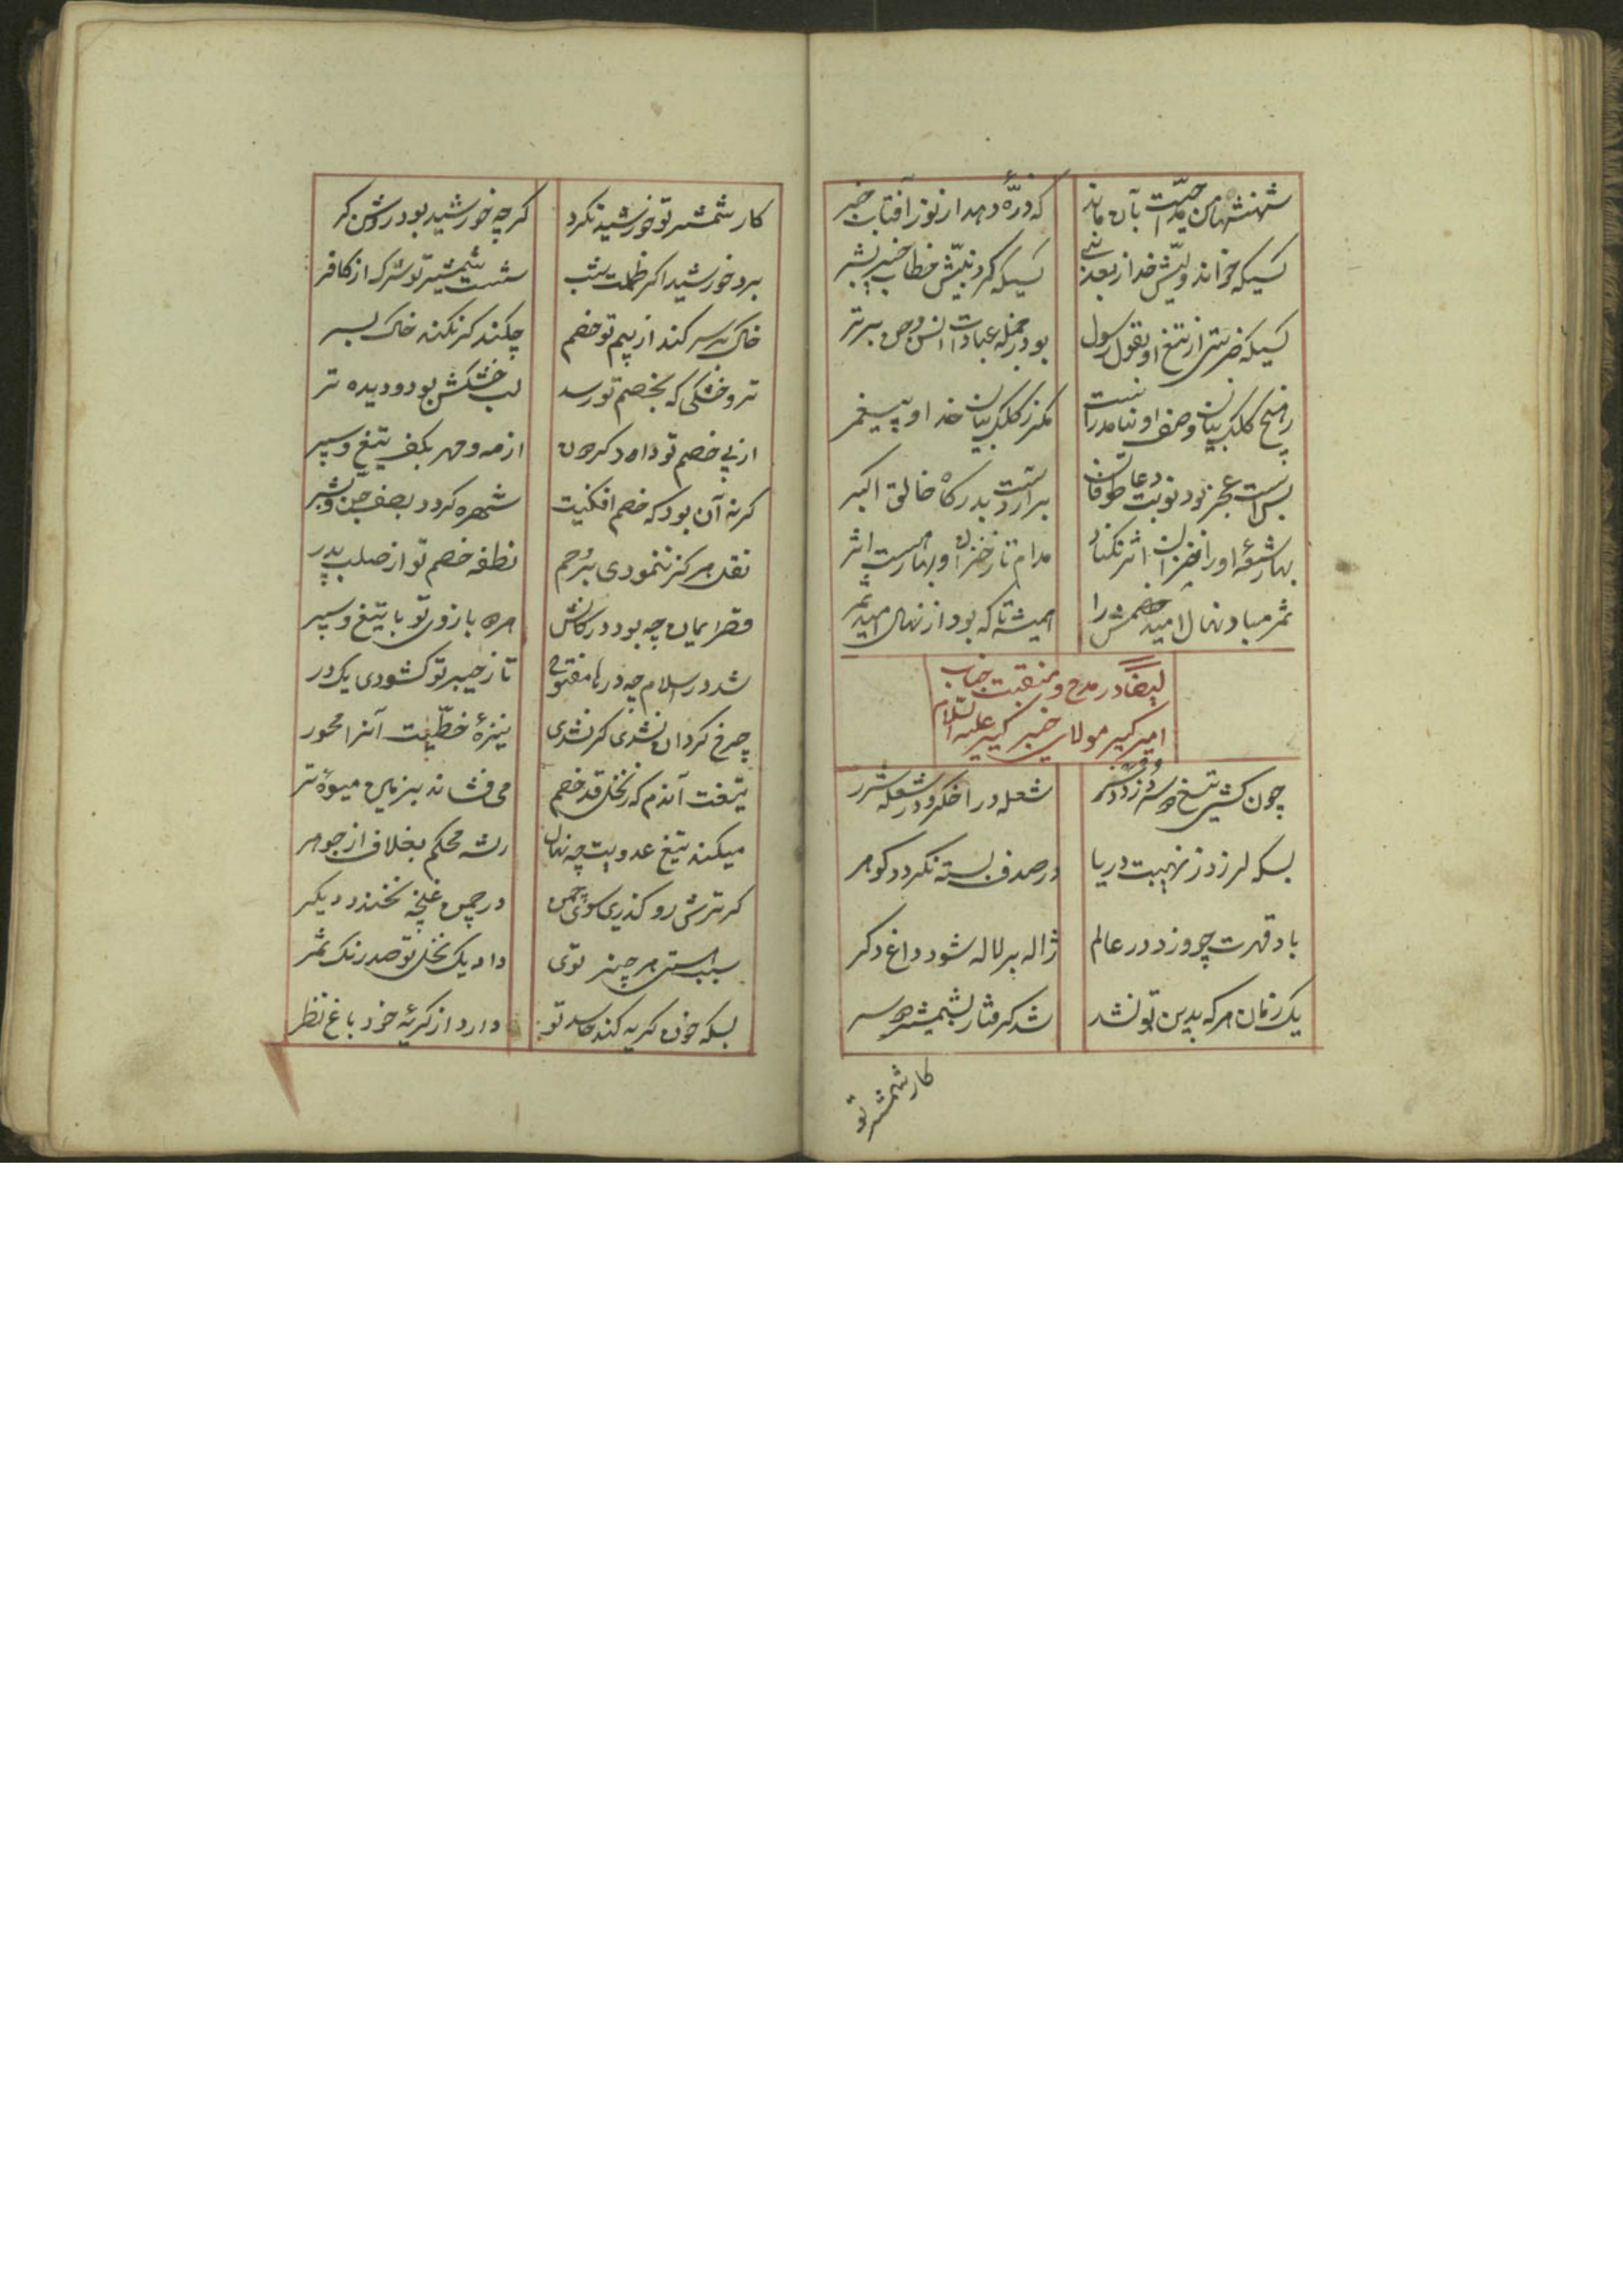 شهنشها من مدحت بآن ماند
که ذرّهٔ دهد از نور آفتاب خبر
کسیکه خواند ولیّش خدا ز بعد نبی
کسیکه کرد نبیّش خطاب خیر بشر
کسیکه ضربتی از تیغ او بقول رسول
بود ز جمله عبادات انس و جن برتر
ز هیچ کلک بیان وصف او نیامد راست
مگر ز کلک بیان خدا و پیغمبر
بس است عجز بود نوبت دعا طوفان
برار دست بدرگاه خالق اکبر
بهار شیعهٔ او را خزان اثر نکناد
مدام تا ز خزان و بهار هست اثر
ثمر مباد نهال امید خصمش را
همیشه تا که بود از نهال امید ثمر
ایضا در مدح و منقبت جناب
امیر کبیر مولای خیبر گیر علیه السلام
چون کشی تیغ دو سر دزدد سر
شعله در اخگر و در شعله شرر
بسکه لرزد ز نهیبت دریا
در صدف بسته نگردد گوهر
باد قهرت چو وزد در عالم
ژاله بر لاله شود داغ دگر
یک زمان هر که بدین تو نشد
شد گرفتار بشمشیر دو سر
کار شمشیر تو
کار شمشیر تو خورشید نکرد
گرچه خورشید بود روشن گر
برد خورشید اگر ظلمت شب
شست شمشیر تو شرک از کافر
خاک بر سر کند از بیم تو خصم
چکند گر نکند خاک بسر
تر و خشکی که بخصم تو رسد
لب خشکش بود و دیده تر
از پی خصم تو داد گردون
از مه و مهر بکف تیغ و سپر
گر نه آن بود که خصم افکنیت
شهره گردد بصف جن و بشر
نقل هرگز ننمودی برحم
نطفه خصم تو از صلب پدر
قصر ایمان چه بود در کانش
مره بازوی تو با تیغ و سپر
شد در اسلام چه درها مفتوح
تا ز خیبر تو گشودی یک در
چرخ گردان نشدی گر نشدی
نیزهٔ خطّیت آنرا محور
تیغت آندم که ز نخل قد خصم
می فشاند بزمین میوهٔ تر
میکند تیغ عدویت چه نهال
رشه محکم بغلاف از جوهر
گر ترش رو گذری سوی چمن
در چمن غنچه نخندد دیگر
سبب هستی هر چیز توی
داد یک نخل تو صد رنگ ثمر
بسکه خون گریه کند حاسد تو
دارد از گریهٔ خود باغ نظر